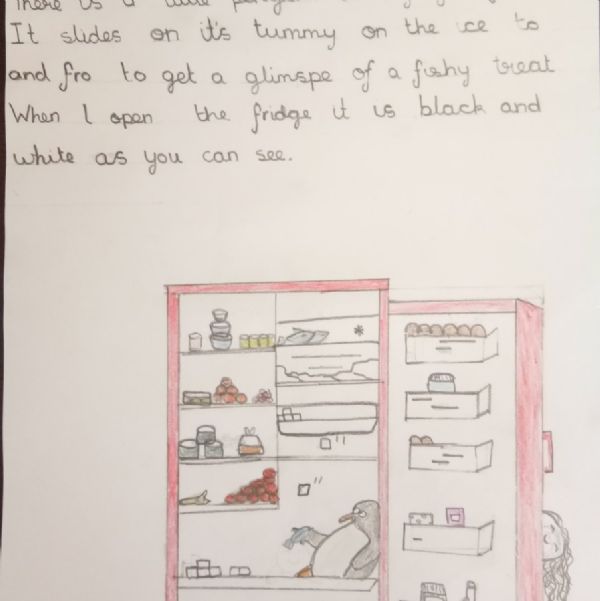 There is a little
It slides on it's tummy on the ice to
and fro to get a glimspe of a fishy treat
When I open the fridge it is black and
white as you can see.